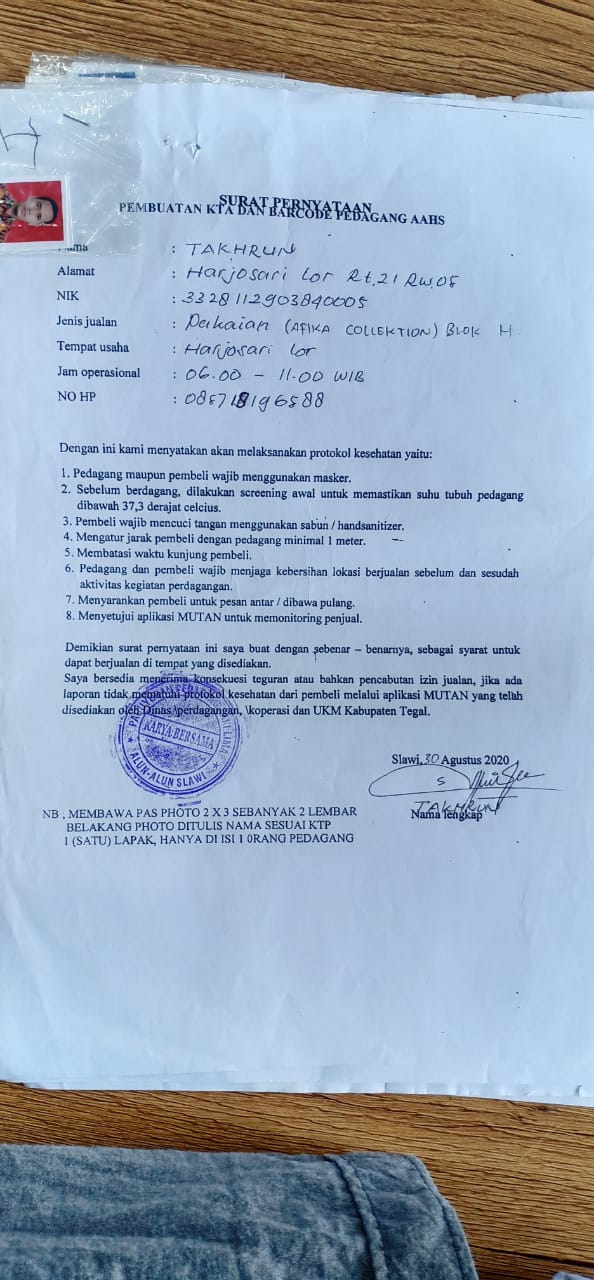 SURAT PERNYATAAN
PEMBUATAN KTA DAN BARCODE PEDAGANG AAHS
: TAKHRUN
Alamat : Harjosari Lor Rt.21 Rw.08
NIK : 3328112903840005
Jenis jualan : Pakaian (AFIKA COLLEKTION) BLOK H
Tempat usaha : Harjosari Lor
Jam operasional : 06.00 – 11.00 WIB
NO HP : 085718196588
Dengan ini kami menyatakan akan melaksanakan protokol kesehatan yaitu:
1. Pedagang maupun pembeli wajib menggunakan masker.
2. Sebelum berdagang, dilakukan screening awal untuk memastikan suhu tubuh pedagang
dibawah 37,3 derajat celcius.
3. Pembeli wajib mencuci tangan menggunakan sabun / handsanitizer.
4. Mengatur jarak pembeli dengan pedagang minimal 1 meter.
5. Membatasi waktu kunjung pembeli.
6. Pedagang dan pembeli wajib menjaga kebersihan lokasi berjualan sebelum dan sesudah
aktivitas kegiatan perdagangan.
7. Menyarankan pembeli untuk pesan antar / dibawa pulang.
8. Menyetujui aplikasi MUTAN untuk memonitoring penjual.
Demikian surat pernyataan ini saya buat dengan sebenar – benarnya, sebagai syarat untuk
dapat berjualan di tempat yang disediakan.
Saya bersedia menerima konsekuesi teguran atau bahkan pencabutan izin jualan, jika ada
laporan tidak mematuhi protokol kesehatan dari pembeli melalui aplikasi MUTAN yang telah
disediakan oleh Dinas \perdagangan, \koperasi dan UKM Kabupaten Tegal.
KARYA BERSAMA
ALUN-ALUN SLAWI
Slawi, 30 Agustus 2020
TAKHRUN
Nama lengkap
NB , MEMBAWA PAS PHOTO 2 X 3 SEBANYAK 2 LEMBAR
BELAKANG PHOTO DITULIS NAMA SESUAI KTP
1 (SATU) LAPAK, HANYA DI ISI 1 0RANG PEDAGANG